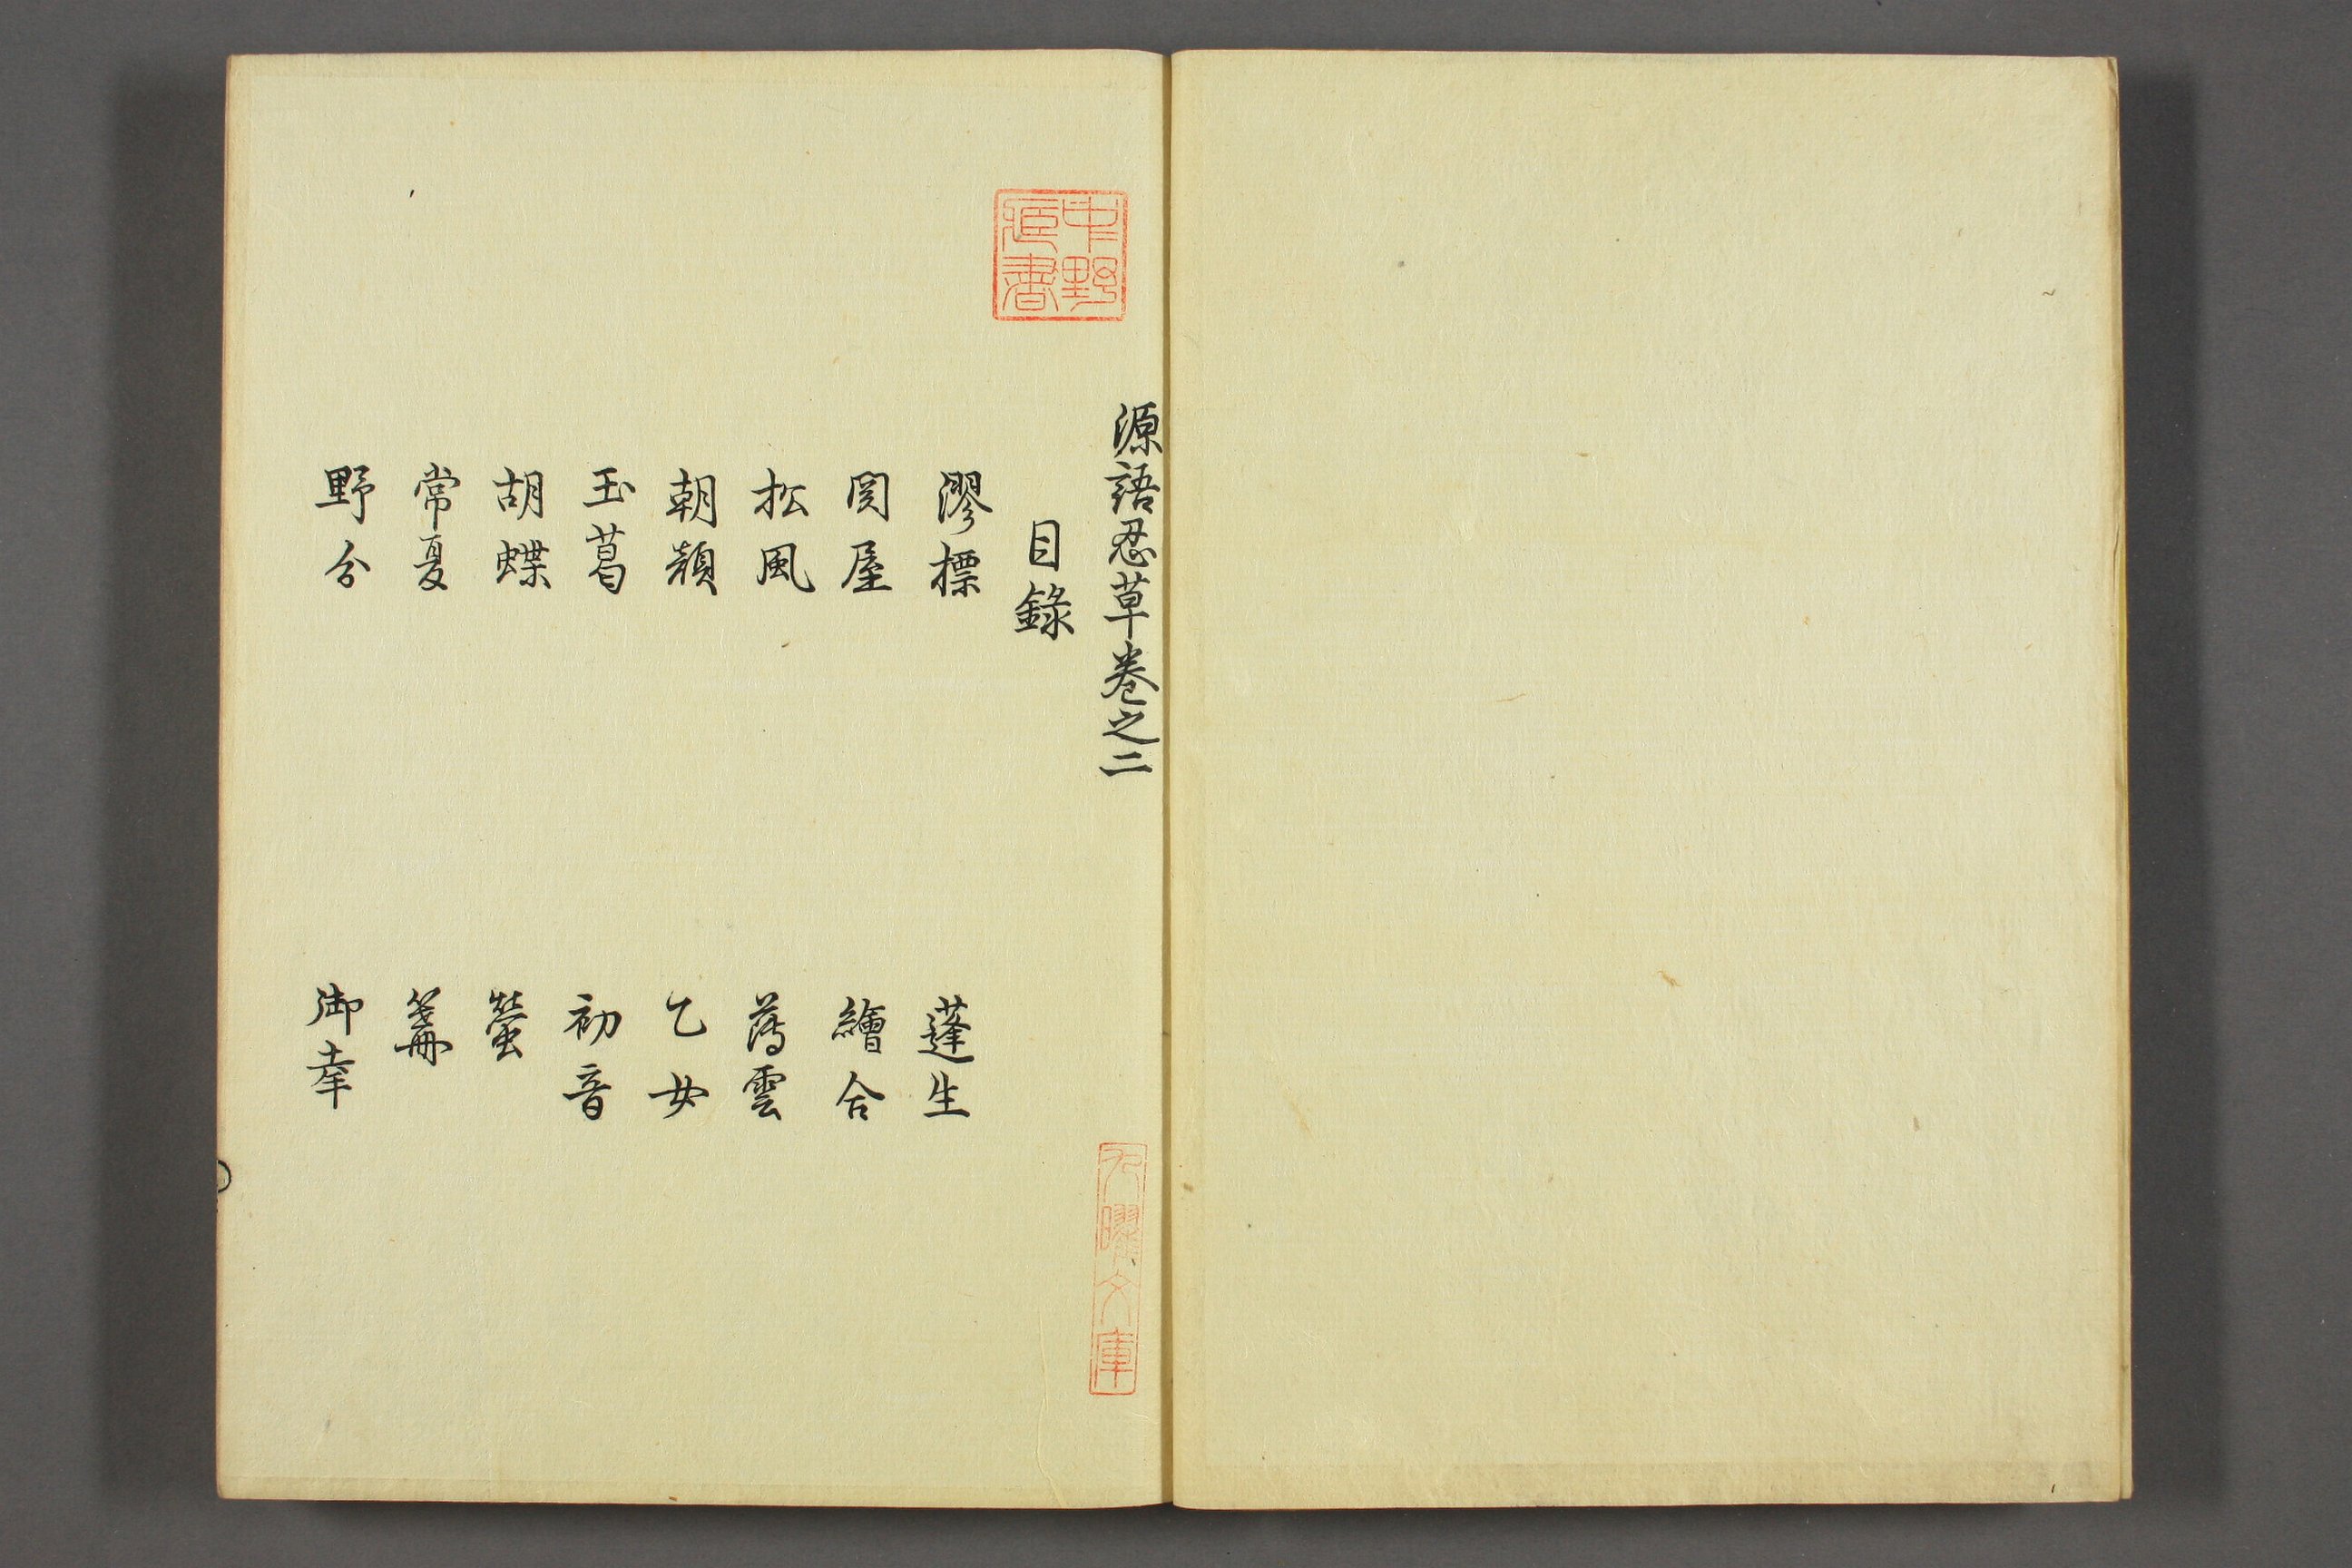 源語忍草巻之二
目錄
澪標
蓬生
関屋
繪合
松風
薄雲
朝顔
乙女
玉葛
初音
胡蝶
螢
常夏
篝
野分
御幸
中野
蔵書
九曜文庫